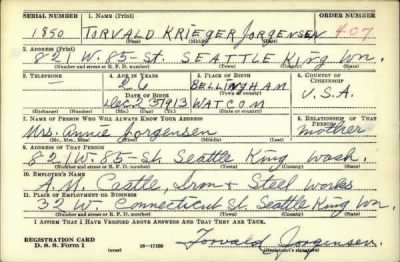 SERIAL NUMBER 1. NAME (Print) ORDER NUMBER
1850 TORVALD KRIEGER JORGENSEN 407
(First) (Middle) (Last)
2. ADDRESS (Print)
821 W. 85-St. SEATTLE King Wn.
(Number and street or R. F. D. number) (Town) (County) (State)
3. TELEPHONE 4. AGE IN YEARS 5. PLACE OF BIRTH 6. COUNTRY OF CITIZENSHIP
BELLINGHAM
DATE OF BIRTH (Town or county) U.S.A.
Dec. 25 1913 WATCOM
(Exchange) (Number) (Mo.) (Day) (Yr.) (State or country)
7. NAME OF PERSON WHO WILL ALWAYS KNOW YOUR ADDRESS 8. RELATIONSHIP OF THAT PERSON
Mrs. Annie Jorgensen mother
(Mr., Mrs., Miss) (First) (Middle) (Last)
9. ADDRESS OF THAT PERSON
821 W. 85-St. Seattle King Wash.
(Number and street or R. F. D. number) (Town) (County) (State)
10. EMPLOYER'S NAME
A. M. Castle, Iron & Steel works
11. PLACE OF EMPLOYMENT OR BUSINESS
32 W. Connecticut St. Seattle King Wn
(Number and street or R. F. D. number) (Town) (County) (State)
I AFFIRM THAT I HAVE VERIFIED ABOVE ANSWERS AND THAT THEY ARE TRUE.
REGISTRATION CARD
D. S. S. Form 1 (over) 16-17105 Torvald Jorgensen.
(Registrant's signature)